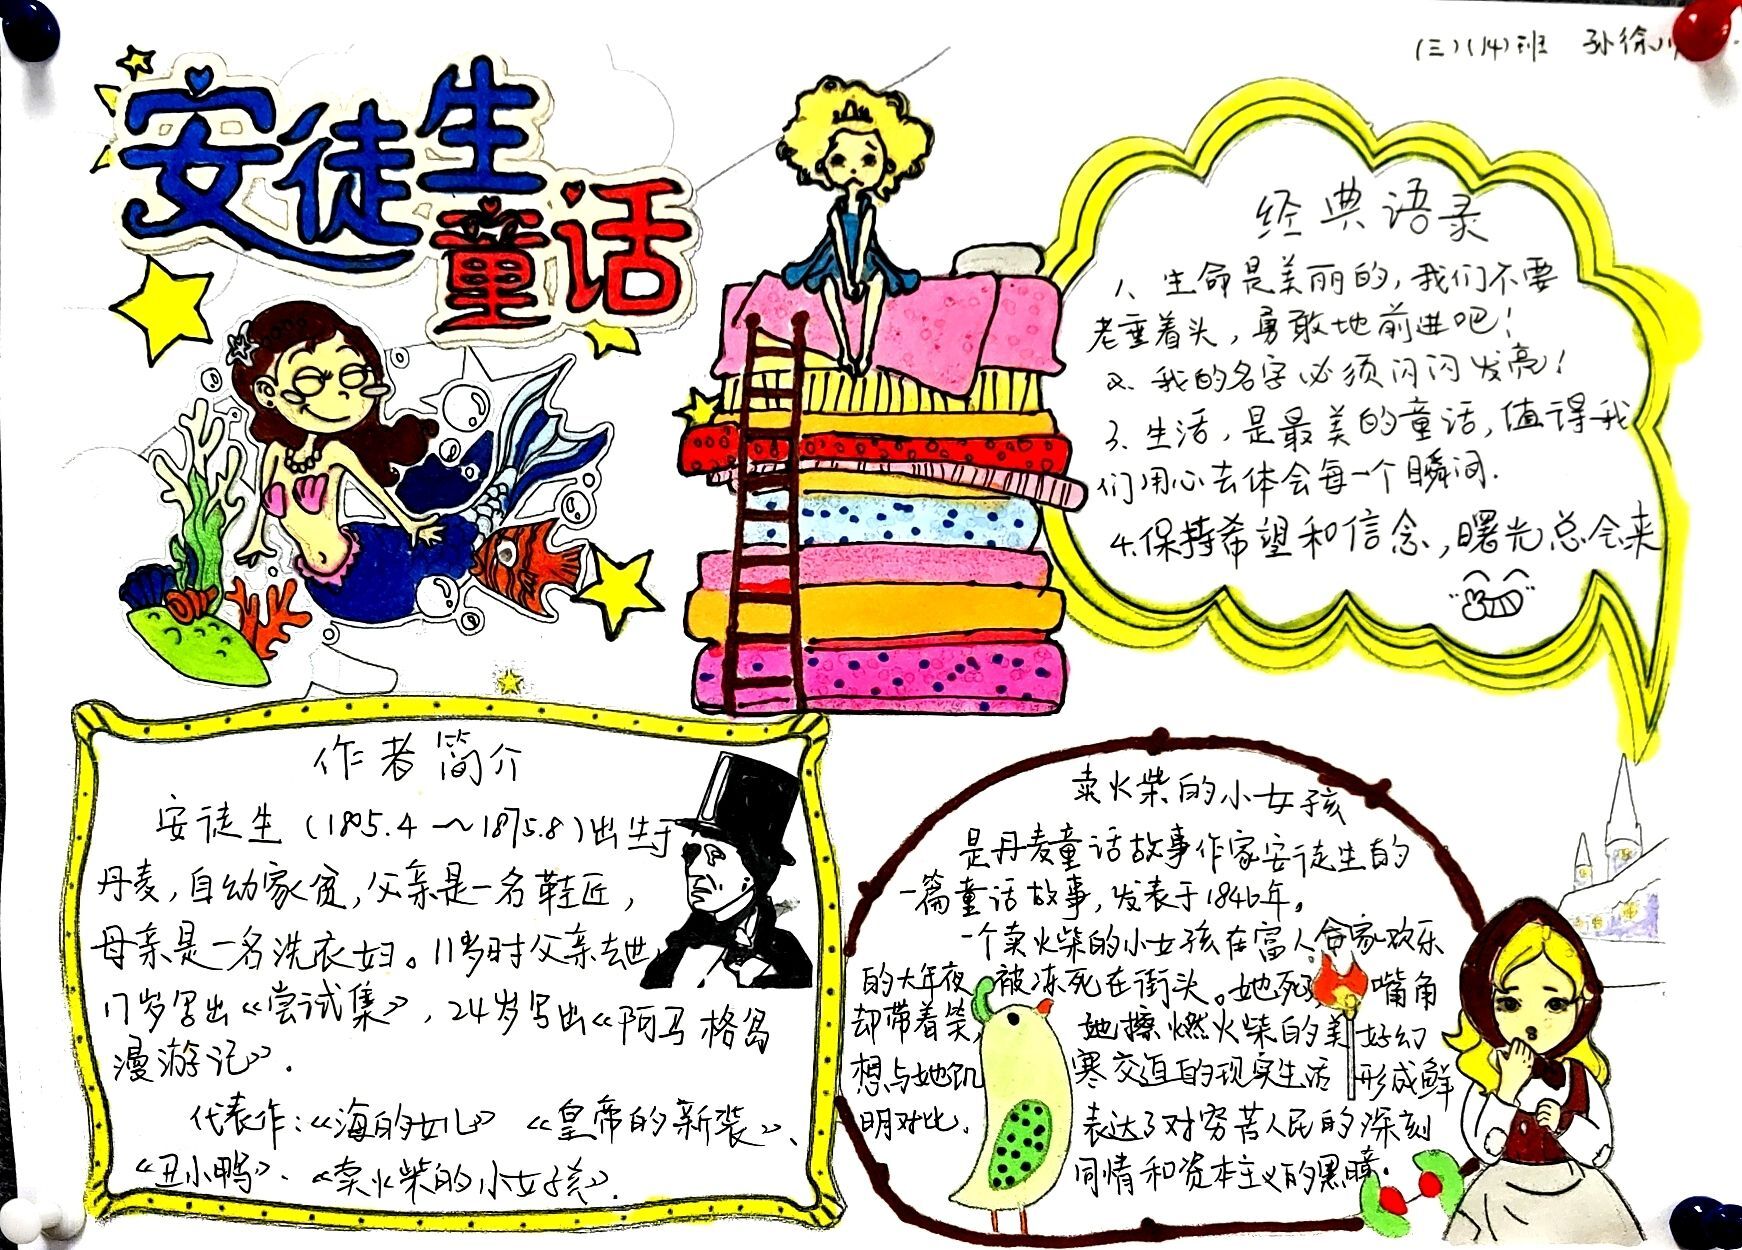 (三)(14)班 孙徐
安徒生
童话
经典语录
1、生命是美丽的，我们不要
老垂着头，勇敢地前进吧！
2、我的名字必须闪闪发亮！
3、生活，是最美的童话，值得我
们用心去体会每一个瞬间.
4.保持希望和信念，曙光总会来
作者简介
安徒生（1805.4～1875.8）出生于
丹麦，自幼家贫，父亲是一名鞋匠，
母亲是一名洗衣妇。11岁时父亲去世，
17岁写出《尝试集》，24岁写出《阿马格岛
漫游记》.
代表作：《海的女儿》《皇帝的新装》、
《丑小鸭》、《卖火柴的小女孩》.
卖火柴的小女孩
是丹麦童话故事作家安徒生的
一篇童话故事，发表于1846年。
一个卖火柴的小女孩在富人合家欢乐
的大年夜 被冻死在街头。她死 嘴角
却带着笑， 她擦燃火柴的美好幻
想与她饥 寒交迫的现实生活 形成鲜
明对比. 表达了对穷苦人民的深刻
同情和资本主义的黑暗.